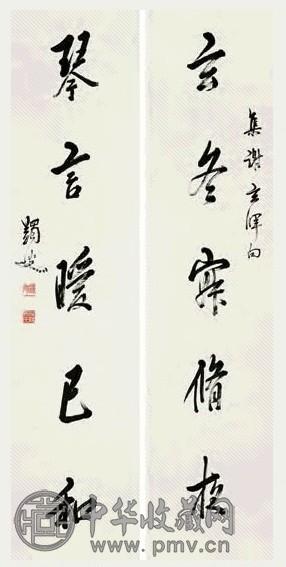 集謝玄暉句
玄冬寂脩夜
琴言已和
蠲叟
中华收藏网
www.pmv.cn